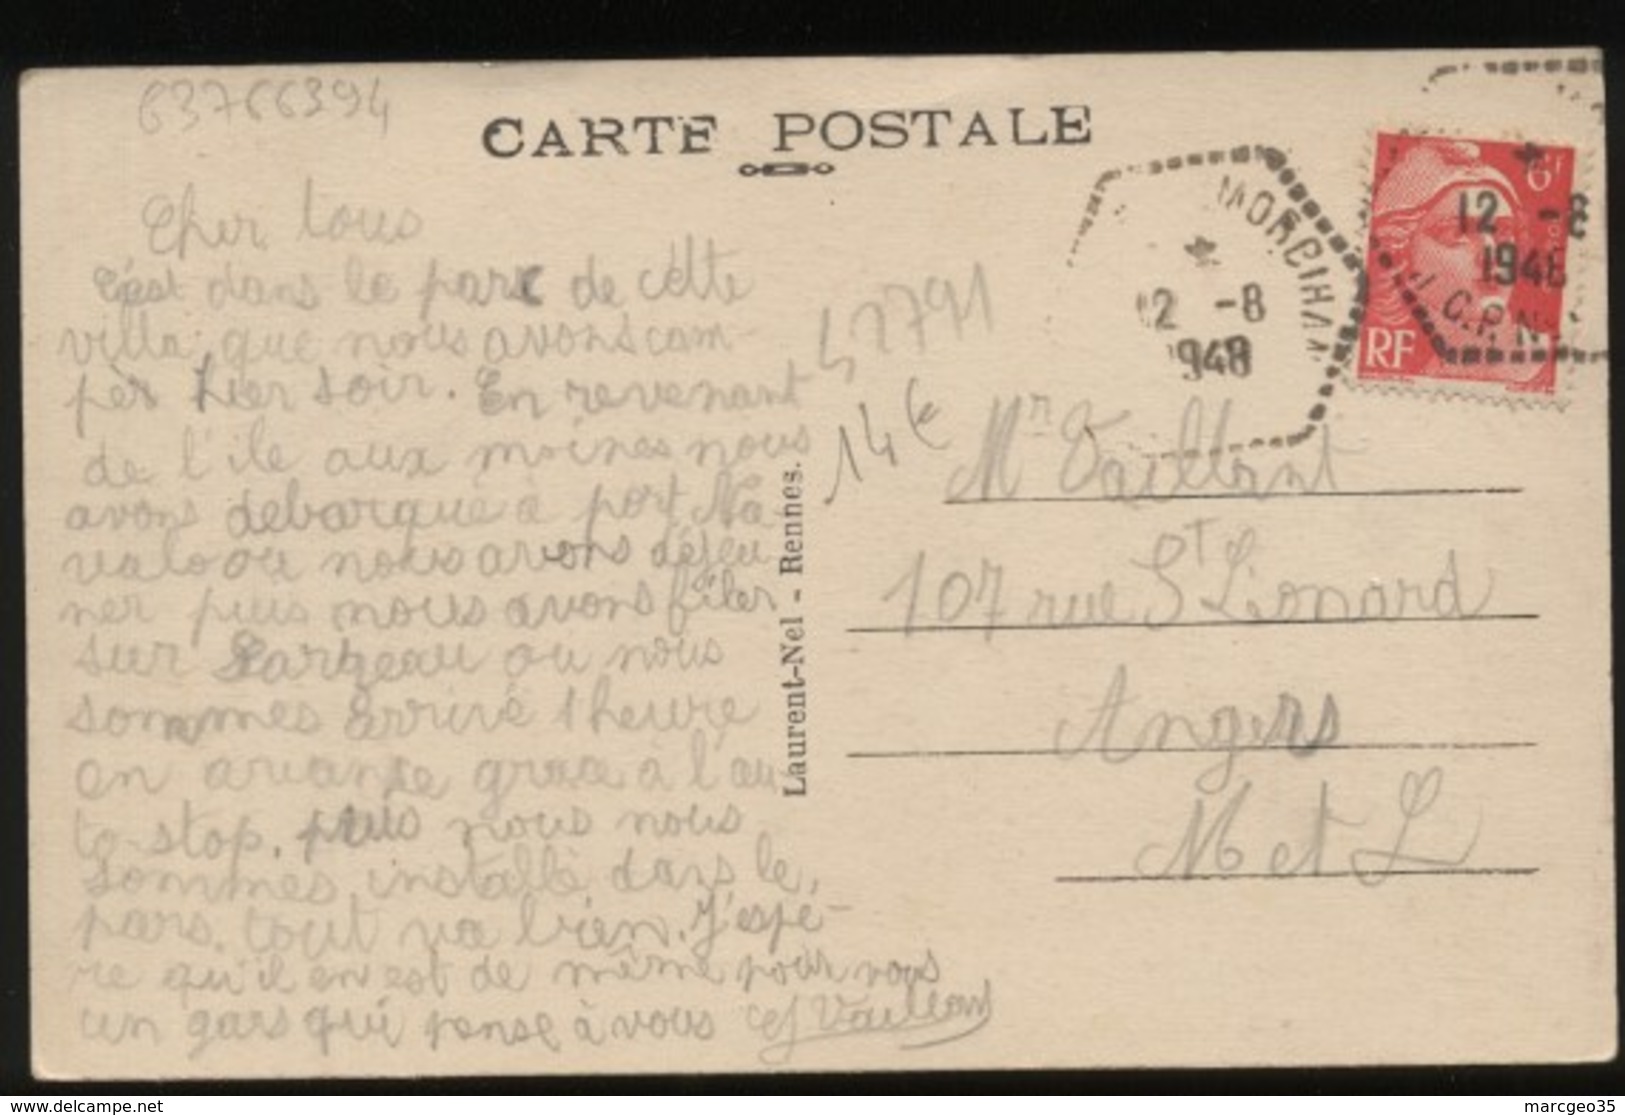 63766394
CARTE POSTALE
MORBIHAN
12 -8
1948
6F
12 -8
1948
RF
Cher tous
c'est dans le parc de cette
villa que nous avons cam-
per hier soir. En revenant
de l'ile aux moines nous
avons debarqué à port Na-
valo ou nous avons déjeu
ner puis nous avons filer
sur Sarzeau ou nous
sommes arrivé 1 heure
en avance grace à l'au-
to-stop, puis nous nous
sommes installé dans le
parc. tout va bien. J'espè-
re qu'il en est de même pour vous
un gars qui pense à vous Vaillant
42791
14€
Laurent-Nel - Rennes.
Mr Vaillant
107 rue St Lionard
Angers
M et L
marcgeo35